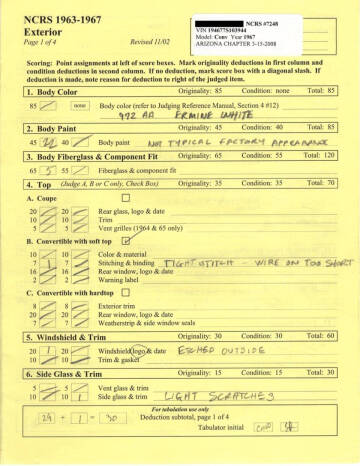 NCRS 1963-1967
Exterior
Page 1 of 4
Revised 11/02
NCRS #7248
VIN 194677S103944
Model: Conv Year 1967
ARIZONA CHAPTER 3-15-2008
Scoring: Point assignments at left of score boxes. Mark originality deductions in first column and
condition deductions in second column. If no deduction, mark score box with a diagonal slash. If
deduction is made, note reason for deduction to right of the judged item.
1. Body Color Originality: 85 Condition: none Total: 85
85 none Body color (refer to Judging Reference Manual, Section 4 #12)
972 AA ERMINE WHITE
2. Body Paint Originality: 45 Condition: 40 Total: 85
45 22 40 Body paint NOT TYPICAL FACTORY APPEARANCE
3. Body Fiberglass & Component Fit Originality: 65 Condition: 55 Total: 120
65 5 55 Fiberglass & component fit
4. Top (Judge A, B or C only, Check Box) Originality: 35 Condition: 35 Total: 70
A. Coupe
20 20 Rear glass, logo & date
10 10 Trim
5 5 Vent grilles (1964 & 65 only)
B. Convertible with soft top
10 10 Color & material
7 1 7 Stitching & binding TIGHT STITCH - WIRE ON TOO SHORT
16 16 Rear window, logo & date
2 2 Warning label
C. Convertible with hardtop
8 8 Exterior trim
20 20 Rear window, logo & date
7 7 Weatherstrip & side window seals
5. Windshield & Trim Originality: 30 Condition: 30 Total: 60
20 1 20 Windshield, logo & date ETCHED OUTSIDE
10 10 Trim & gasket
6. Side Glass & Trim Originality: 15 Condition: 15 Total: 30
5 5 Vent glass & trim
10 10 1 Side glass & trim LIGHT SCRATCHES
For tabulation use only
29 + 1 = 30 Deduction subtotal, page 1 of 4
Tabulator initial